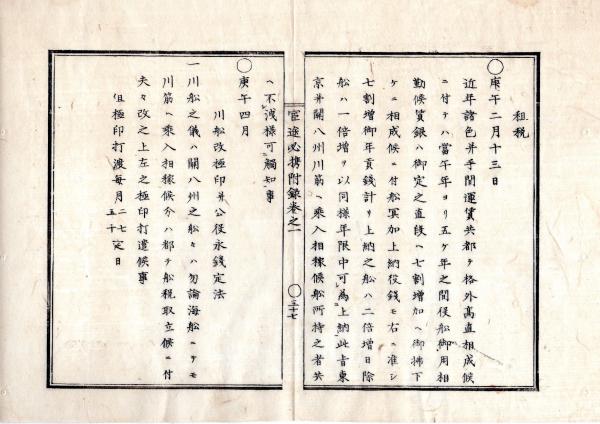 租税
○庚午二月十三日
近年諸色并手間運賃共都テ格外高直相成候
ニ付テハ當午年ヨリ五ケ年之間役船御用相
勤候賃銀ハ御定之直段ヘ七割増加ヘ御拂下
ケニ相成候ニ付船軍加上納役錢モ右ニ准シ
七割増御年貢錢計リ上納之船ハ二倍増日除
船ハ一倍増ヲ以同様年限中可為上納此旨東
京并關八州川筋ヘ乘入相稼候船所持之者共
官途必携附録巻之一
○三十七
ヘ不洩様可觸知事
○庚午四月
川船改極印并公役永錢定法
一川船之儀ハ關八州之船々ハ勿論海船ニテモ
川筋ヘ乘入相稼候分ハ都テ船税取立候ニ付
夫々改之上左之極印打遣候事
但極印打渡毎月二七五十定日